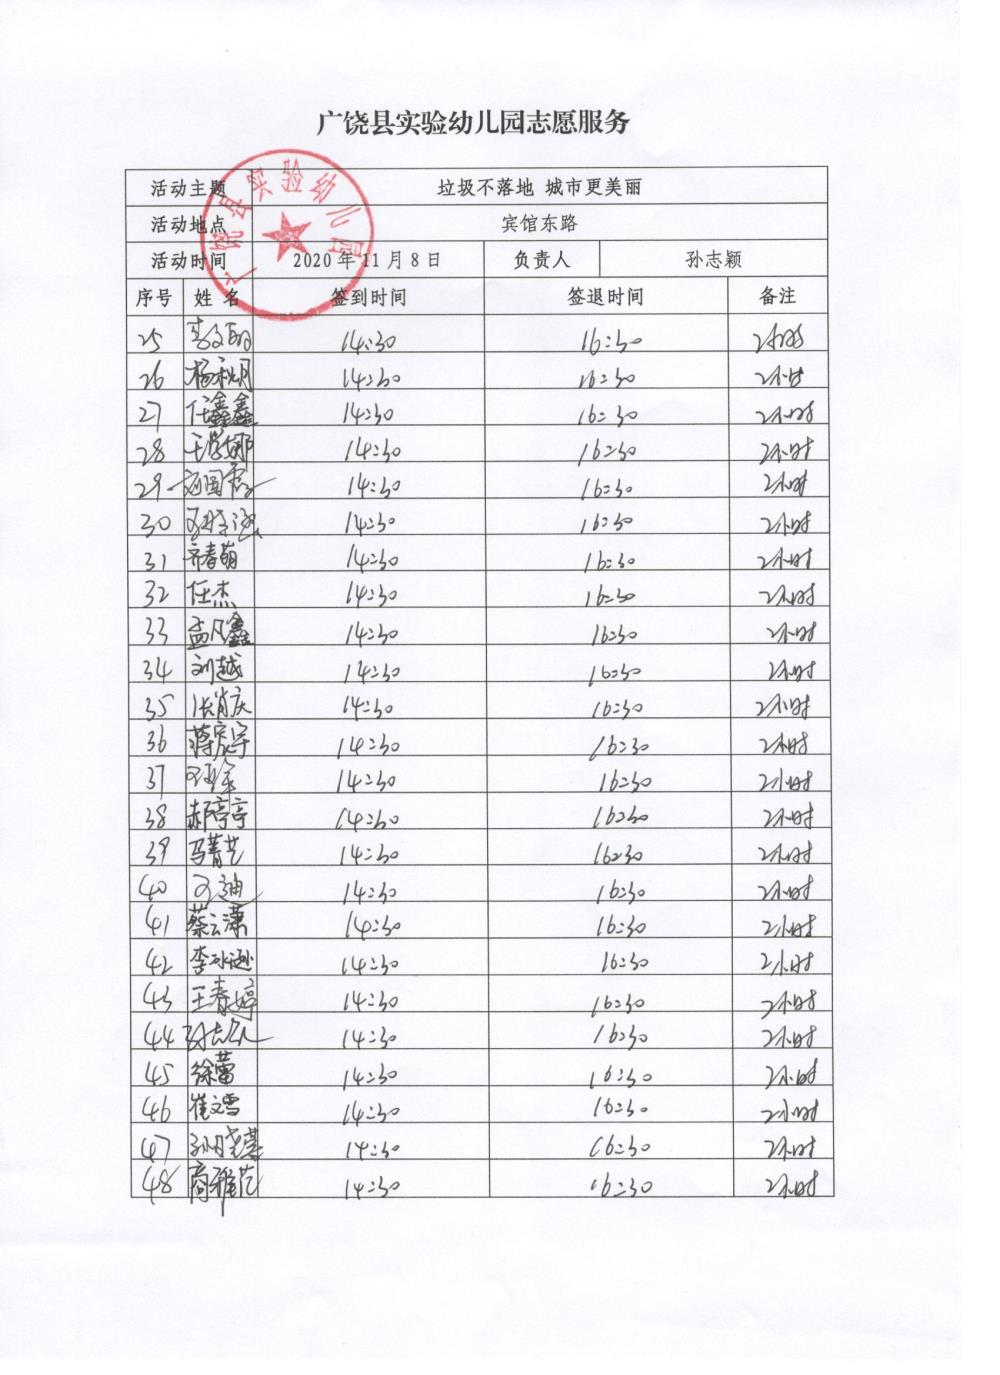 广饶县实验幼儿园志愿服务
广饶县实验幼儿园
活动主题 垃圾不落地 城市更美丽
活动地点 宾馆东路
活动时间 2020年11月8日 负责人 孙志颖
序号 姓名 签到时间 签退时间 备注
25 14:30 16:30 2小时
26 杨秋月 14:30 16:30 2小时
27 任鑫鑫 14:30 16:30 2小时
28 14:30 16:30 2小时
29 14:30 16:30 2小时
30 14:30 16:30 2小时
31 齐春萌 14:30 16:30 2小时
32 任杰 14:30 16:30 2小时
33 孟凡鑫 14:30 16:30 2小时
34 刘越 14:30 16:30 2小时
35 张肖庆 14:30 16:30 2小时
36 蒋家宇 14:30 16:30 2小时
37 14:30 16:30 2小时
38 郝亭亭 14:30 16:30 2小时
39 马菁艺 14:30 16:30 2小时
40 14:30 16:30 2小时
41 蔡云潇 14:30 16:30 2小时
42 李冰逊 14:30 16:30 2小时
43 王春婷 14:30 16:30 2小时
44 14:30 16:30 2小时
45 徐蕾 14:30 16:30 2小时
46 崔文雪 14:30 16:30 2小时
47 14:30 16:30 2小时
48 商雅范 14:30 16:30 2小时